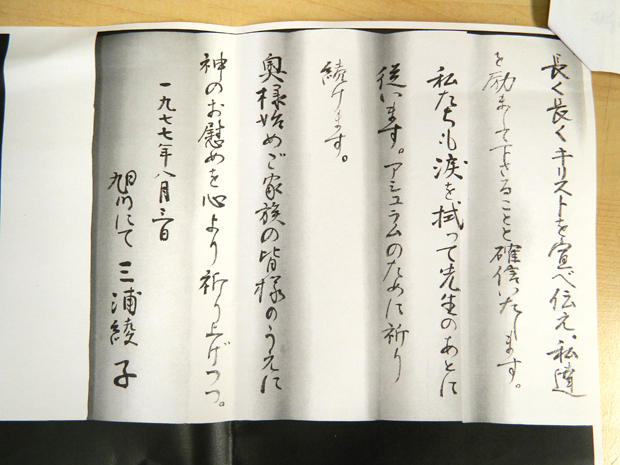 長く長くキリストを宣べ伝え、私達
を励まして下さることと確信いたします。
私たちも涙を拭って先生のあとに
従います。アシュラムのために祈り
続けます。
奥様始めご家族の皆様のうえに
神のお慰めを心より祈り上げつつ。
一九七七年八月三日
旭川にて 三浦綾子